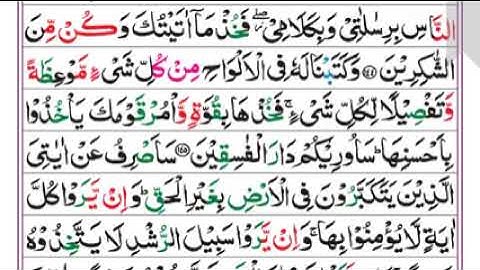 النَّاسِ بِرِسٰلٰتِیْ وَبِكَلَامِیْ ۖ٘ فَخُذْ مَاۤ اٰتَیْتُكَ وَكُنْ مِّنَ
الشّٰكِرِیْنَ ۝۱۴۴ وَكَتَبْنَا لَهٗ فِی الْاَلْوَاحِ مِنْ كُلِّ شَیْءٍ مَّوْعِظَةً
وَّتَفْصِیْلًا لِّكُلِّ شَیْءٍ ۚ فَخُذْهَا بِقُوَّةٍ وَّاْمُرْ قَوْمَكَ یَاْخُذُوْا
بِاَحْسَنِهَا ؕ سَاُورِیْكُمْ دَارَ الْفٰسِقِیْنَ ۝۱۴۵ سَاَصْرِفُ عَنْ اٰیٰتِیَ
الَّذِیْنَ یَتَكَبَّرُوْنَ فِی الْاَرْضِ بِغَیْرِ الْحَقِّ ؕ وَاِنْ یَّرَوْا كُلَّ
اٰیَةٍ لَّا یُؤْمِنُوْا بِهَا ۚ وَاِنْ یَّرَوْا سَبِیْلَ الرُّشْدِ لَا یَتَّخِذُوْهُ